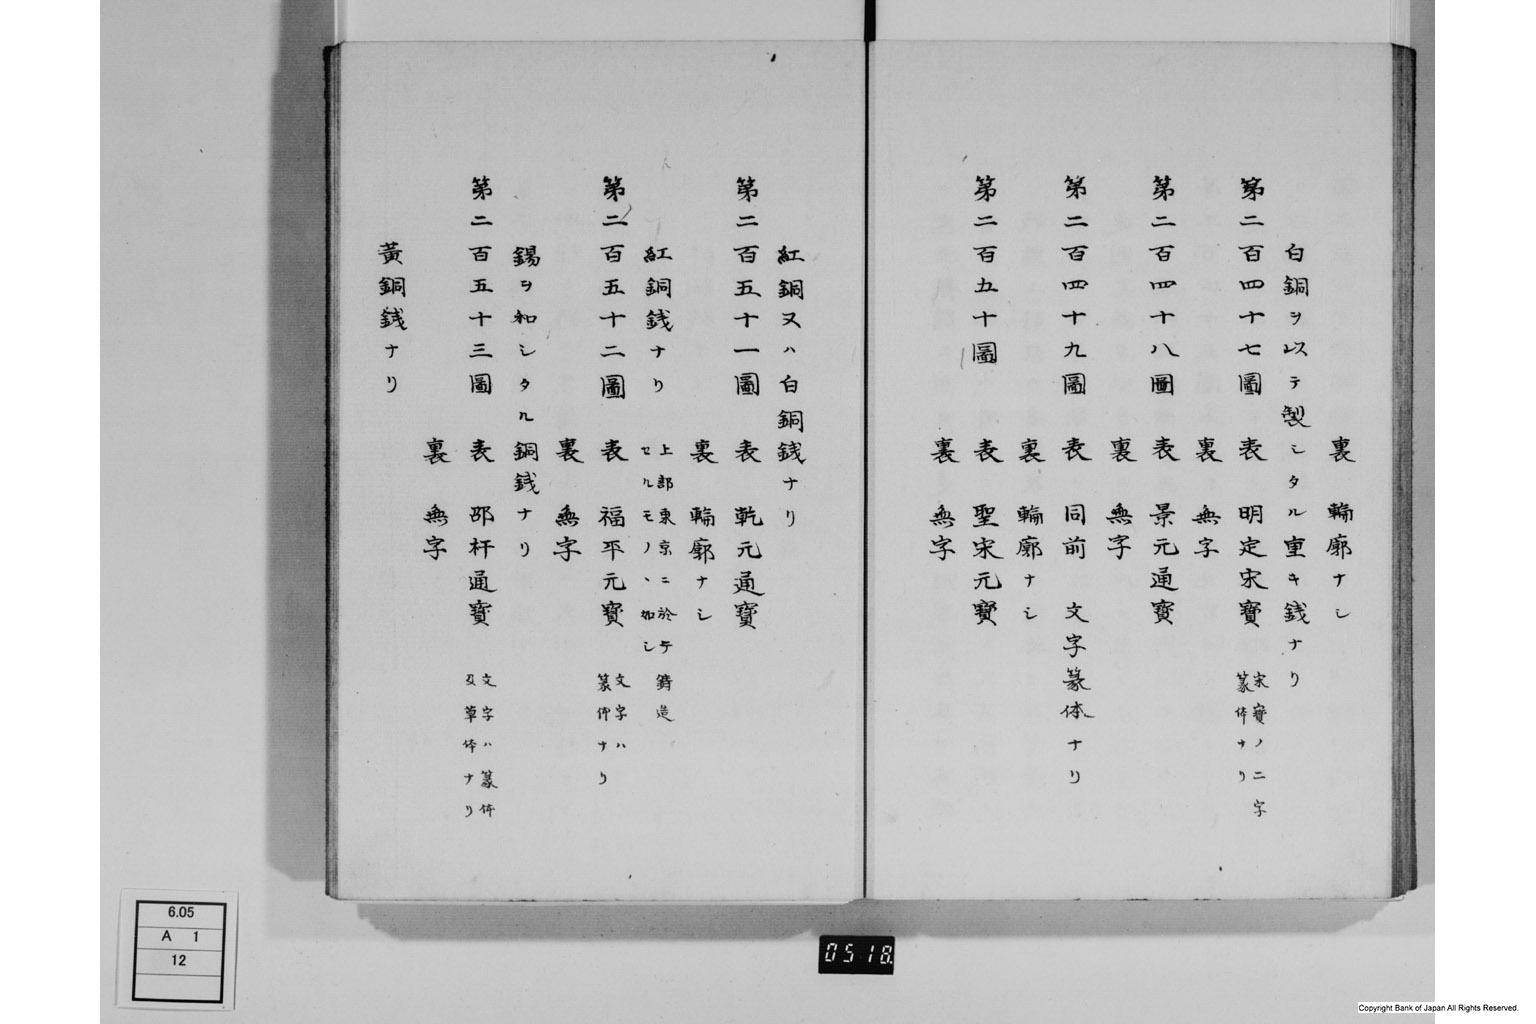 裏 輪廓ナシ
白銅ヲ以テ製シタル重キ銭ナリ
第二百四十七圖 表 明定宋寶 宋寶ノ二字
篆体ナリ
裏 無字
第二百四十八圖 表 景元通寶
裏 無字
第二百四十九圖 表 同前 文字篆体ナリ
裏 輪廓ナシ
第二百五十圖 表 聖宋元寶
裏 無字
紅銅又ハ白銅銭ナリ
第二百五十一圖 表 乾元通寶
裏 輪廓ナシ
紅銅銭ナリ 上部東京ニ於テ鑄造
セルモノヽ如シ
第二百五十二圖 表 福平元寶 文字ハ
篆体ナリ
裏 無字
錫ヲ和シタル銅銭ナリ
第二百五十三圖 表 邵杆通寶 文字ハ篆体
及草体ナリ
裏 無字
黃銅銭ナリ
6.05
A 1
12
0518
Copyright Bank of Japan All Rights Reserved.